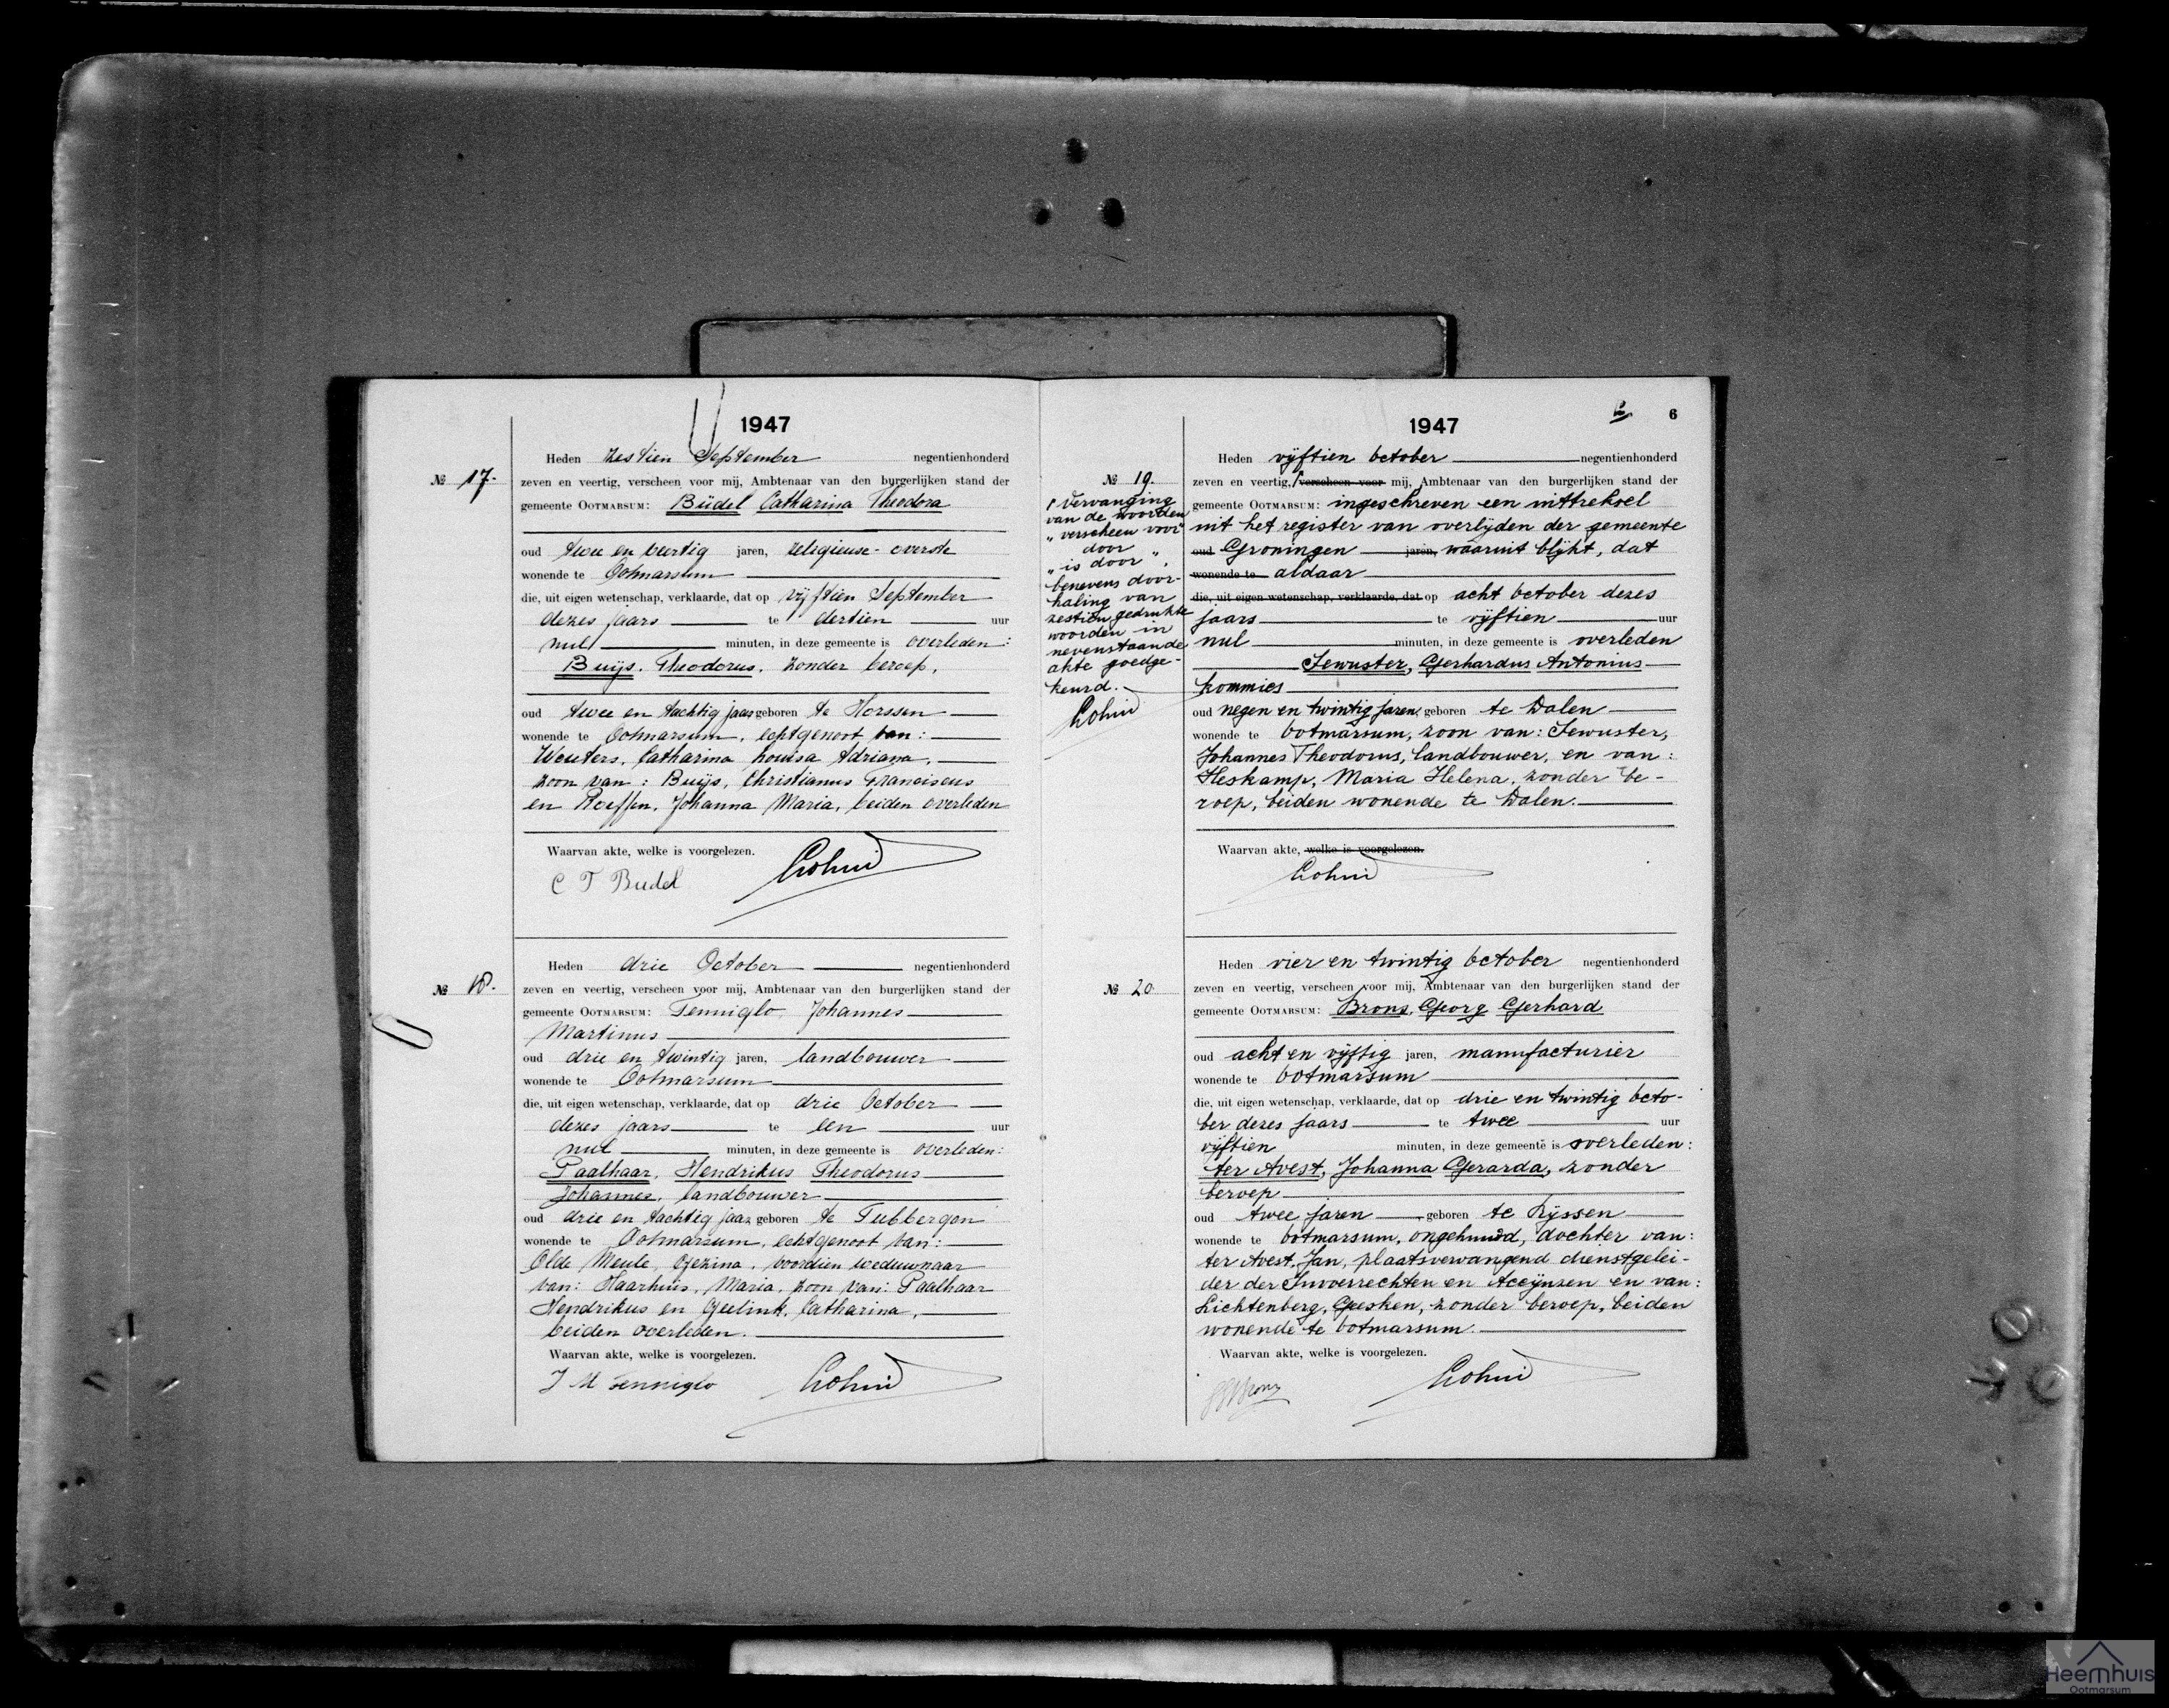 1947
Heden zestien September negentienhonderd
№ 17. zeven en veertig, verscheen voor mij, Ambtenaar van den burgerlijken stand der
gemeente OOTMARSUM: Büdel Catharina Theodora
oud twee en veertig jaren, religieuse-overste
wonende te Ootmarsum
die, uit eigen wetenschap, verklaarde, dat op vijftien September
dezes jaars te dertien uur
nul minuten, in deze gemeente is overleden:
Buijs, Theodorus, zonder beroep,
oud twee en tachtig jaar geboren te Horssen
wonende te Ootmarsum, echtgenoot van:
Wouters, Catharina Louisa Adriana,
zoon van: Buijs, Christianus Franciscus
en Roeffen, Johanna Maria, beiden overleden
Waarvan akte, welke is voorgelezen.
C T Budel
Heden drie October negentienhonderd
№ 18. zeven en veertig, verscheen voor mij, Ambtenaar van den burgerlijken stand der
gemeente OOTMARSUM: Tenniglo, Johannes
Martinus
oud drie en twintig jaren, landbouwer
wonende te Ootmarsum
die, uit eigen wetenschap, verklaarde, dat op drie October
dezes jaars te een uur
nul minuten, in deze gemeente is overleden:
Paalhaar, Hendrikus Theodorus
Johannes, landbouwer
oud drie en tachtig jaar geboren te Tubbergen
wonende te Ootmarsum, echtgenoot van:
Olde Meule, Gezina, voordien weduwnaar
van: Haarhuis, Maria, zoon van: Paalhaar
Hendrikus en Geelink, Catharina,
beiden overleden.
Waarvan akte, welke is voorgelezen.
J M Tenniglo
6
1947
Heden vijftien October negentienhonderd
№ 19. zeven en veertig, verscheen voor mij, Ambtenaar van den burgerlijken stand der
gemeente OOTMARSUM: ingeschreven een uittreksel
uit het register van overlijden der gemeente
oud Groningen jaren, waaruit blijkt, dat
wonende te aldaar
die, uit eigen wetenschap, verklaarde, dat op acht October dezes
jaars te vijftien uur
nul minuten, in deze gemeente is overleden
Sewuster, Gerhardus Antonius
kommies
oud negen en twintig jaren, geboren te Dalen
wonende te Ootmarsum, zoon van: Sewuster,
Johannes Theodorus, landbouwer, en van:
Heskamp, Maria Helena, zonder be-
roep, beiden wonende te Dalen.
Waarvan akte, welke is voorgelezen.
Vervanging
van de woorden
„verscheen voor"
door
„is door",
benevens door-
haling van
zestien gedrukte
woorden in
nevenstaande
akte goedge-
keurd.
Heden vier en twintig October negentienhonderd
№ 20. zeven en veertig, verscheen voor mij, Ambtenaar van den burgerlijken stand der
gemeente OOTMARSUM: Brons, Georg Gerhard
oud acht en vijftig jaren, manufacturier
wonende te Ootmarsum
die, uit eigen wetenschap, verklaarde, dat op drie en twintig Octo-
ber dezes jaars te twee uur
vijftien minuten, in deze gemeente is overleden:
ter Avest, Johanna Gerarda, zonder
beroep
oud twee jaren, geboren te Rijssen
wonende te Ootmarsum, ongehuwd, dochter van:
ter Avest, Jan, plaatsvervangend dienstgelei-
der der Invoerrechten en Accijnzen en van:
Lichtenberg, Geesken, zonder beroep, beiden
wonende te Ootmarsum.
Waarvan akte, welke is voorgelezen.
Heemhuis
Ootmarsum